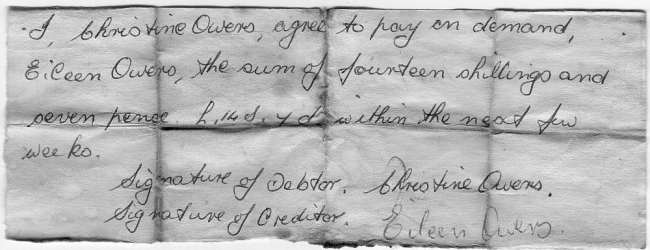 I, Christine Owers, agree to pay on demand,
Eileen Owers, the sum of fourteen shillings and
seven pence. £.14s.7d within the next few
weeks.
Signature of Debtor. Christine Owers.
Signature of Creditor. Eileen Owers.